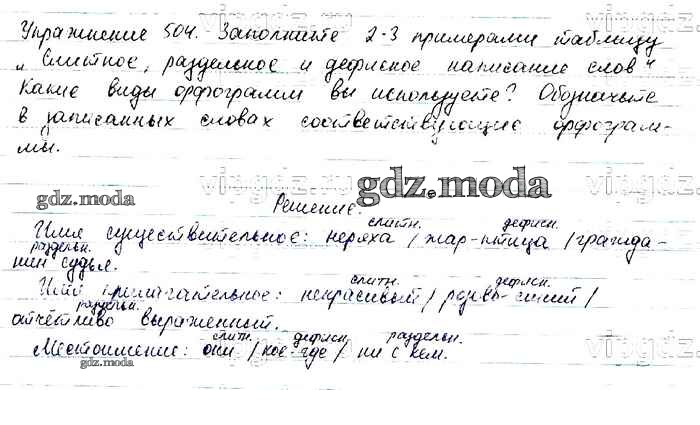 Упражнение 504. Заполните 2-3 примерами таблицу
„Слитное, раздельное и дефисное написание слов“
Какие виды орфограмм вы используете? Обозначьте
в записанных словах соответствующие орфограм-
мы.
gdz.moda
gdz.moda
Решение.
слитн. дефисн.
Имя существительное: неряха / жар-птица / гражда-
раздельн.
нин судья.
слитн. дефисн.
Имя прилагательное: некрасивый / розово-синий /
раздельн.
отчётливо выраженный.
слитн. дефисн. раздельн.
Местоимение: они / кое-где / ни с кем.
gdz.moda